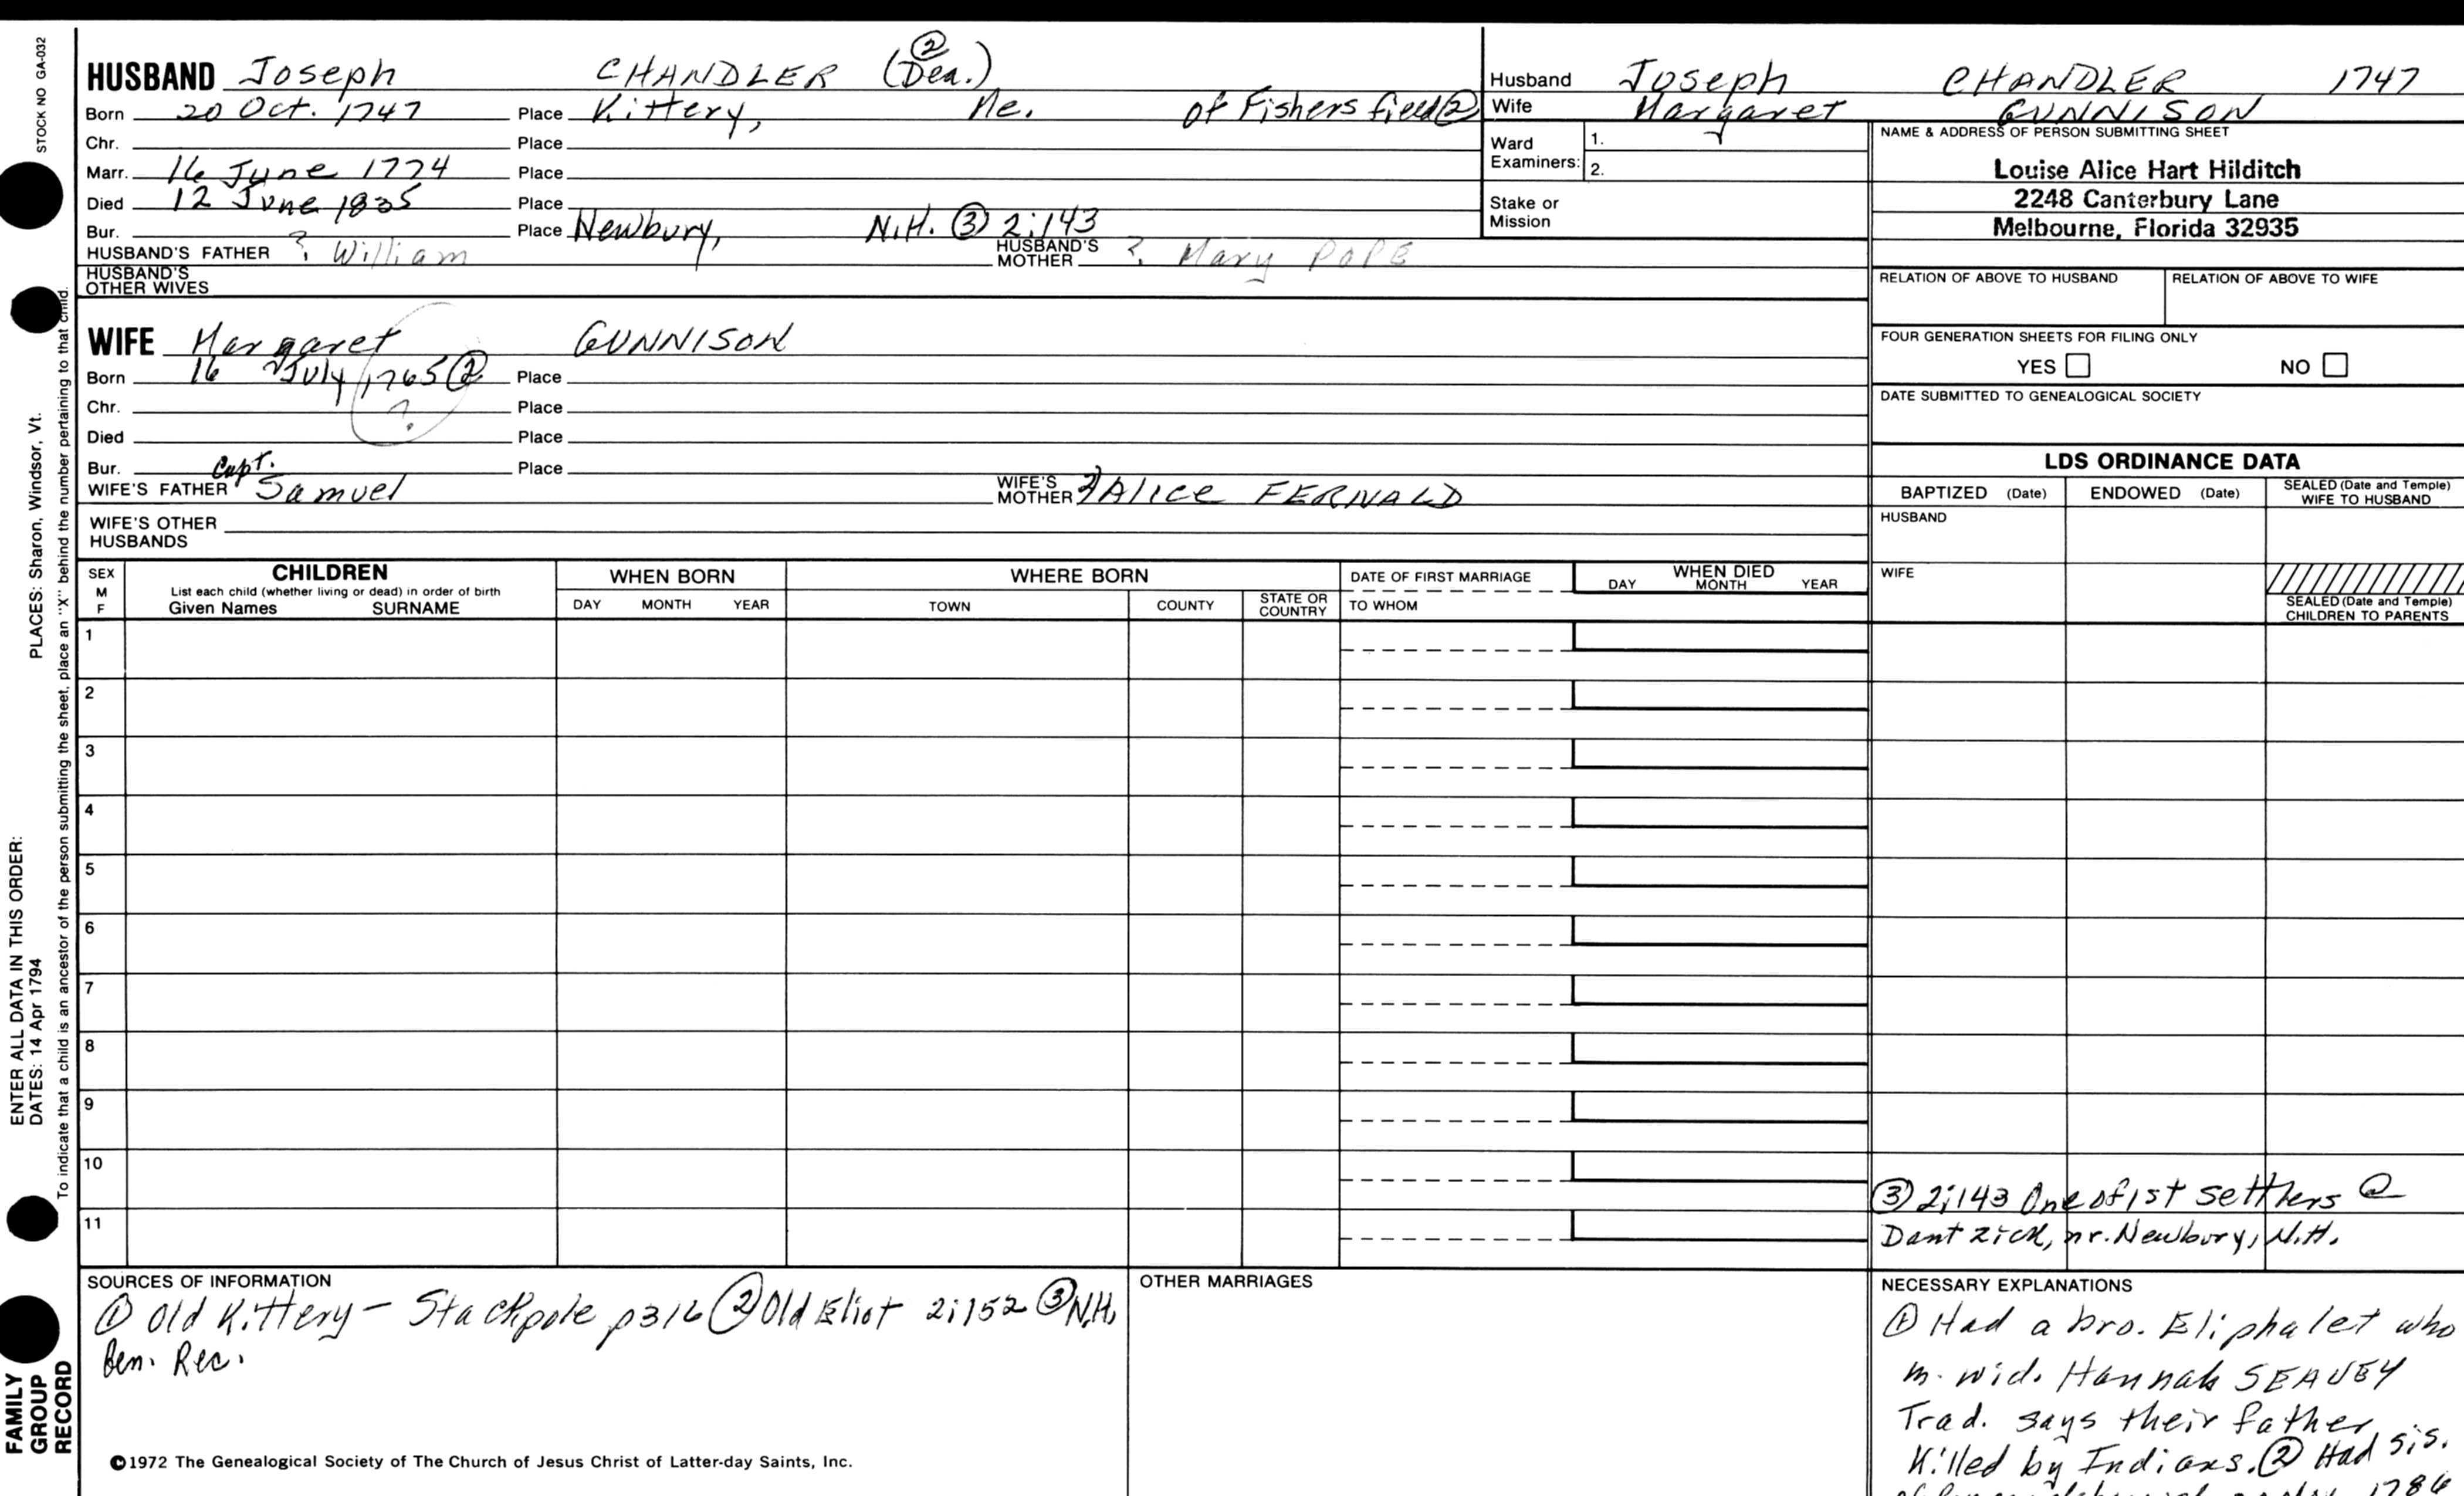 STOCK NO GA-032
PLACES: Sharon, Windsor, Vt.
ENTER ALL DATA IN THIS ORDER:
DATES: 14 Apr 1794
To indicate that a child is an ancestor of the person submitting the sheet, place an "X" behind the number pertaining to that child.
FAMILY
GROUP
RECORD
HUSBAND Joseph CHANDLER (Dea.) ②
Born 20 Oct. 1747 Place Kittery, Me. of Fishersfield ②
Chr. Place
Marr. 16 June 1774 Place
Died 12 June 1835 Place
Bur. Place Newbury, N.H. ③ 2:143
HUSBAND'S FATHER ? William HUSBAND'S MOTHER ? Mary POPE
HUSBAND'S
OTHER WIVES
WIFE Margaret GUNNISON
Born 16 July 1765 ② Place
Chr. ? Place
Died Place
Bur. Place
WIFE'S FATHER Capt. Samuel WIFE'S MOTHER Alice FERNALD
WIFE'S OTHER
HUSBANDS
Husband Joseph CHANDLER 1747
Wife Margaret GUNNISON
Ward
Examiners:
1.
2.
Stake or
Mission
NAME & ADDRESS OF PERSON SUBMITTING SHEET
Louise Alice Hart Hilditch
2248 Canterbury Lane
Melbourne, Florida 32935
RELATION OF ABOVE TO HUSBAND RELATION OF ABOVE TO WIFE
FOUR GENERATION SHEETS FOR FILING ONLY
YES NO
DATE SUBMITTED TO GENEALOGICAL SOCIETY
LDS ORDINANCE DATA
BAPTIZED (Date) ENDOWED (Date) SEALED (Date and Temple)
WIFE TO HUSBAND
HUSBAND
WIFE
SEALED (Date and Temple)
CHILDREN TO PARENTS
SEX
M
F
CHILDREN
List each child (whether living or dead) in order of birth
Given Names SURNAME
WHEN BORN
DAY MONTH YEAR
WHERE BORN
TOWN COUNTY STATE OR COUNTRY
DATE OF FIRST MARRIAGE
TO WHOM
WHEN DIED
DAY MONTH YEAR
1
2
3
4
5
6
7
8
9
10
11
③ 2:143 One of 1st settlers @
Dantzick, nr. Newbury, N.H.
SOURCES OF INFORMATION
① Old Kittery - Stackpole p316 ② Old Eliot 2:152 ③ N.H.
Gen. Rec.
©1972 The Genealogical Society of The Church of Jesus Christ of Latter-day Saints, Inc.
OTHER MARRIAGES
NECESSARY EXPLANATIONS
① Had a bro. Eliphalet who
m. wid. Hannah SEAVEY
Trad. says their father
Killed by Indians. ② Had sis.
1786